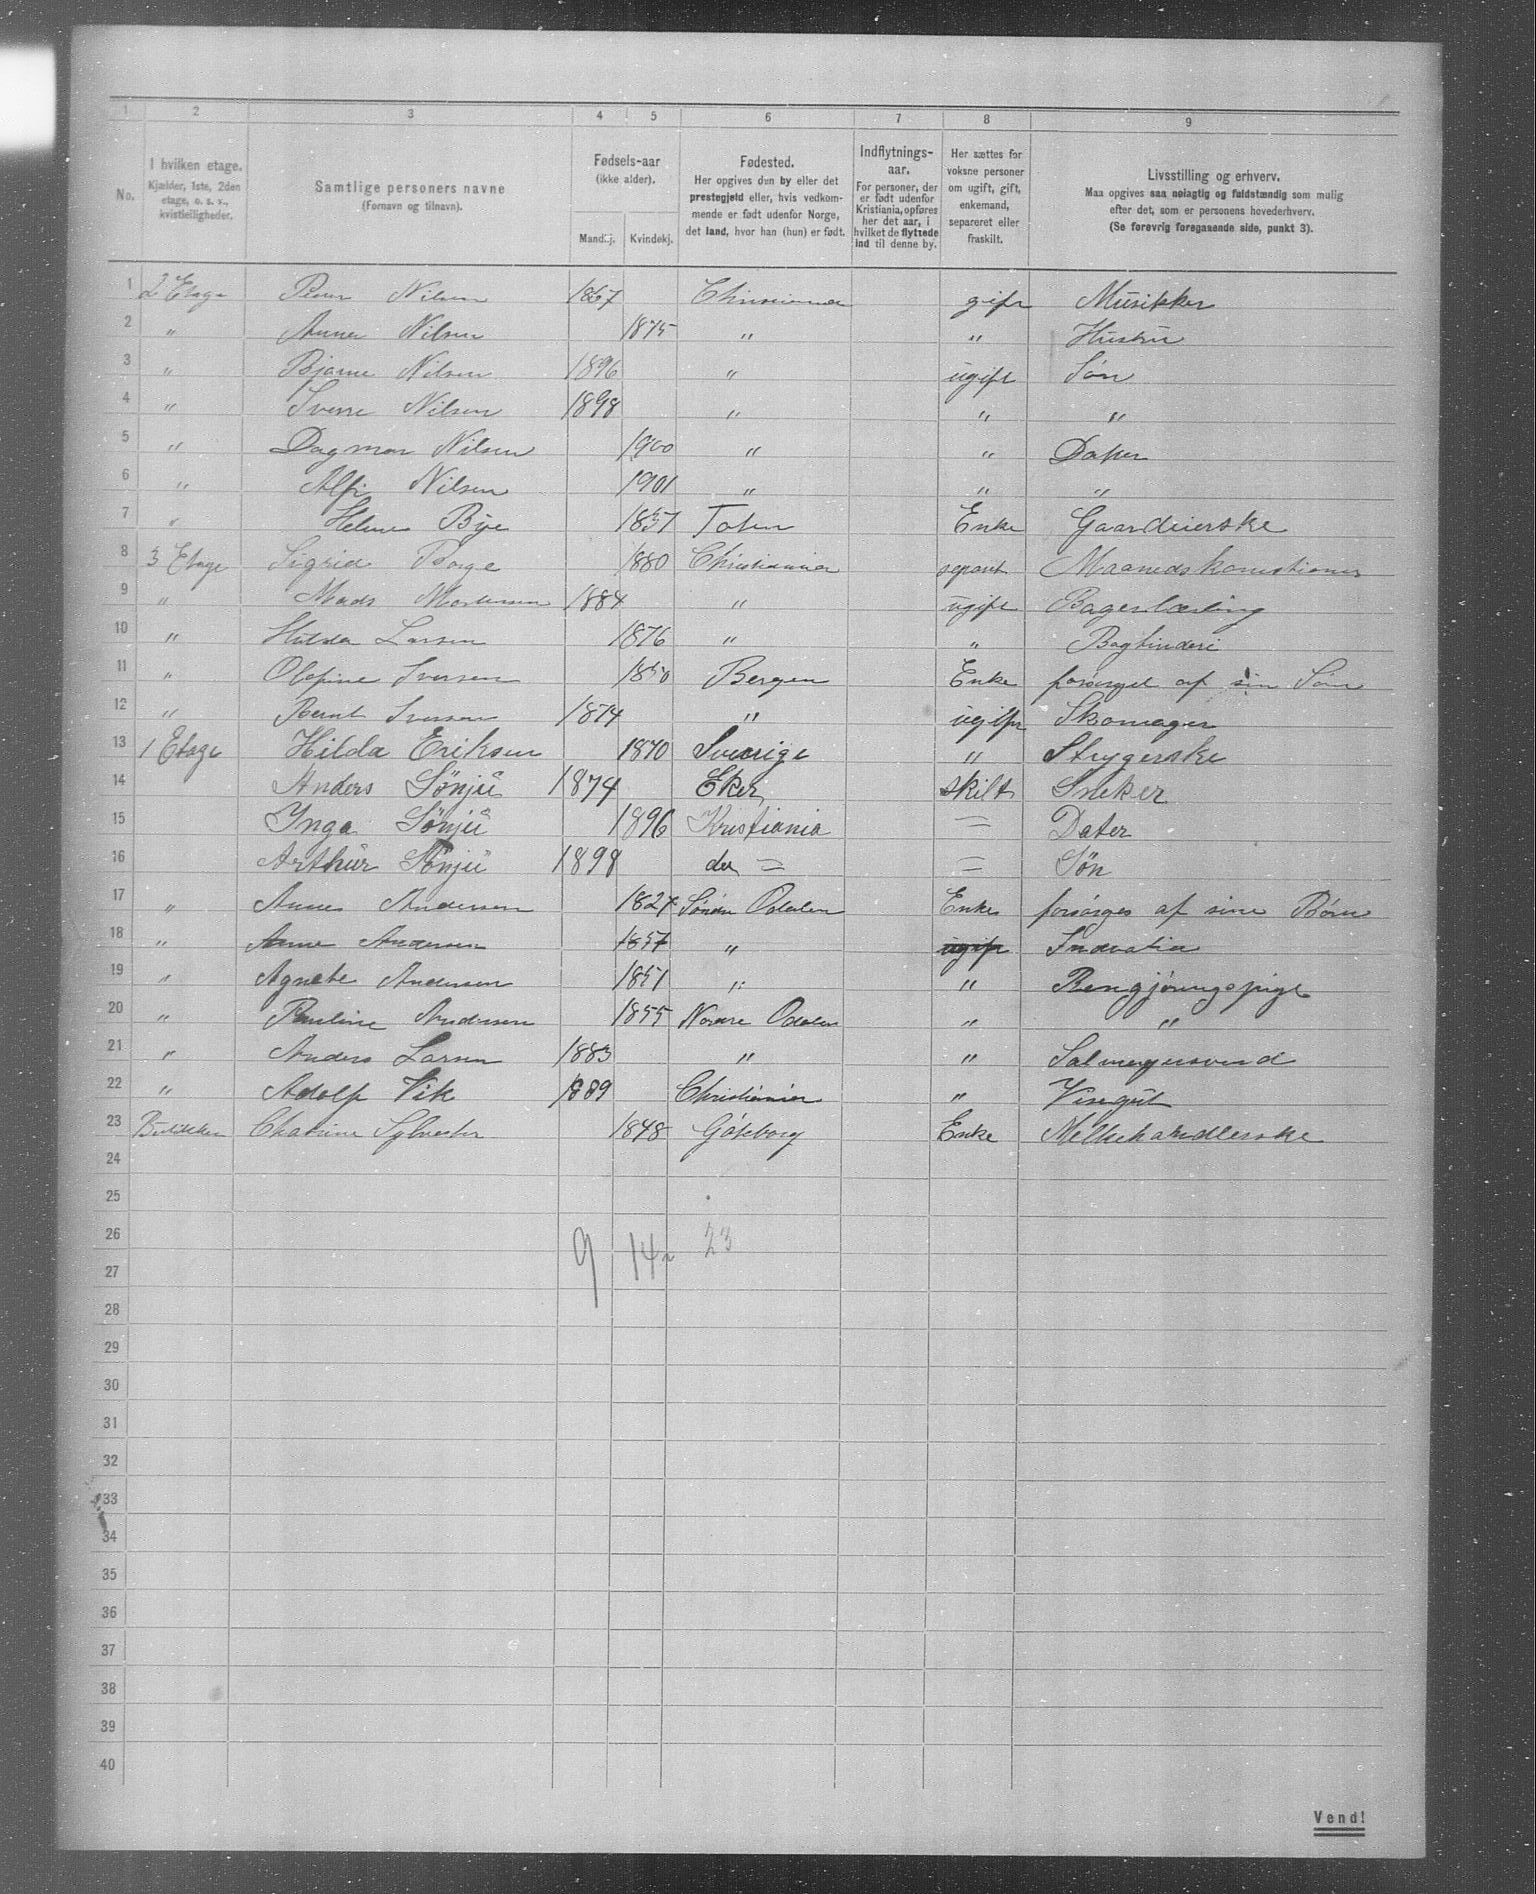 1 2 3 4 5 6 7 8 9
No.
I hvilken etage.
Kjælder, 1ste, 2den
etage, o. s. v.,
kvistleiligheder.
Samtlige personers navne
(Fornavn og tilnavn).
Fødsels-aar
(ikke alder).
Mandkj. Kvindekj.
Fødested.
Her opgives den by eller det
prestegjeld eller, hvis vedkom-
mende er født udenfor Norge,
det land, hvor han (hun) er født.
Indflytnings-
aar.
For personer, der
er født udenfor
Kristiania, opføres
her det aar, i
hvilket de flyttede
ind til denne by.
Her sættes for
voksne personer
om ugift, gift,
enkemand,
separeret eller
fraskilt.
Livsstilling og erhverv.
Maa opgives saa nøiagtig og fuldstændig som mulig
efter det, som er personens hovederhverv.
(Se forøvrig foregaaende side, punkt 3).
1 2 Etage Nilsen 1867 Christiania gift Musikker
2 " Anna Nilsen 1875 " " Hustru
3 " Bjarne Nilsen 1896 " ugift Søn
4 " Sverre Nilsen 1898 " " "
5 " Dagmar Nilsen 1900 " " Dater
6 " Alfi Nilsen 1901 " " "
7 " Helene Bye Toten Enke Gaardeierske
8 3 Etage Sigrid Borge 1880 Christiania separt
9 " Mads Mortensen 1884 " ugift Bagerlærling
10 " Hulda Larsen 1876 " " Bogbinderi
11 " Olefine Iversen 1850 Bergen Enke forsørget af sin Søn
12 " Bernt Iversen 1874 " ugift Skomager
13 1 Etage Hilda Eriksen 1870 Sverige " Strygerske
14 Anders Sönjü 1874 Eker skilt Sneker
15 Ynga Sönjü 1896 Kristiania = Dater
16 Arthur Sönjü 1898 do = = Søn
17 " Anne Andersen 1824 Søndre Odalen Enke forsørges af sine Børn
18 " Anne Andersen 1857 " ugift
19 " Agnete Andersen 1851 " " Rengjøringspige
20 " Pauline Andersen 1855 Nordre Odalen " "
21 " Anders Larsen 1883 " " Salmagersvend
22 " Adolf Vik 1889 Christiania " Visergut
23 Butikken Chatrine Sylvester 1848 Gøteborg Enke Melkehandlerske
24
25
26 9 14 23
27
28
29
30
31
32
33
34
35
36
37
38
39
40
Vend!